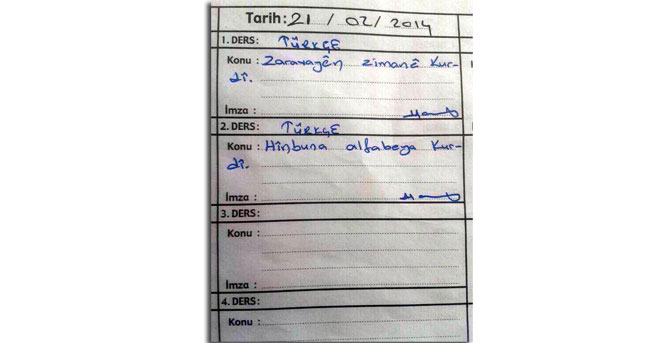 Tarih: 21 / 02 / 2014
1. DERS: TÜRKÇE
Konu : Zaravayên zimanê Kur-
dî.
İmza :
2. DERS: TÜRKÇE
Konu : Hînbuna alfabeya Kur-
dî.
İmza :
3. DERS:
Konu :
İmza :
4. DERS:
Konu :